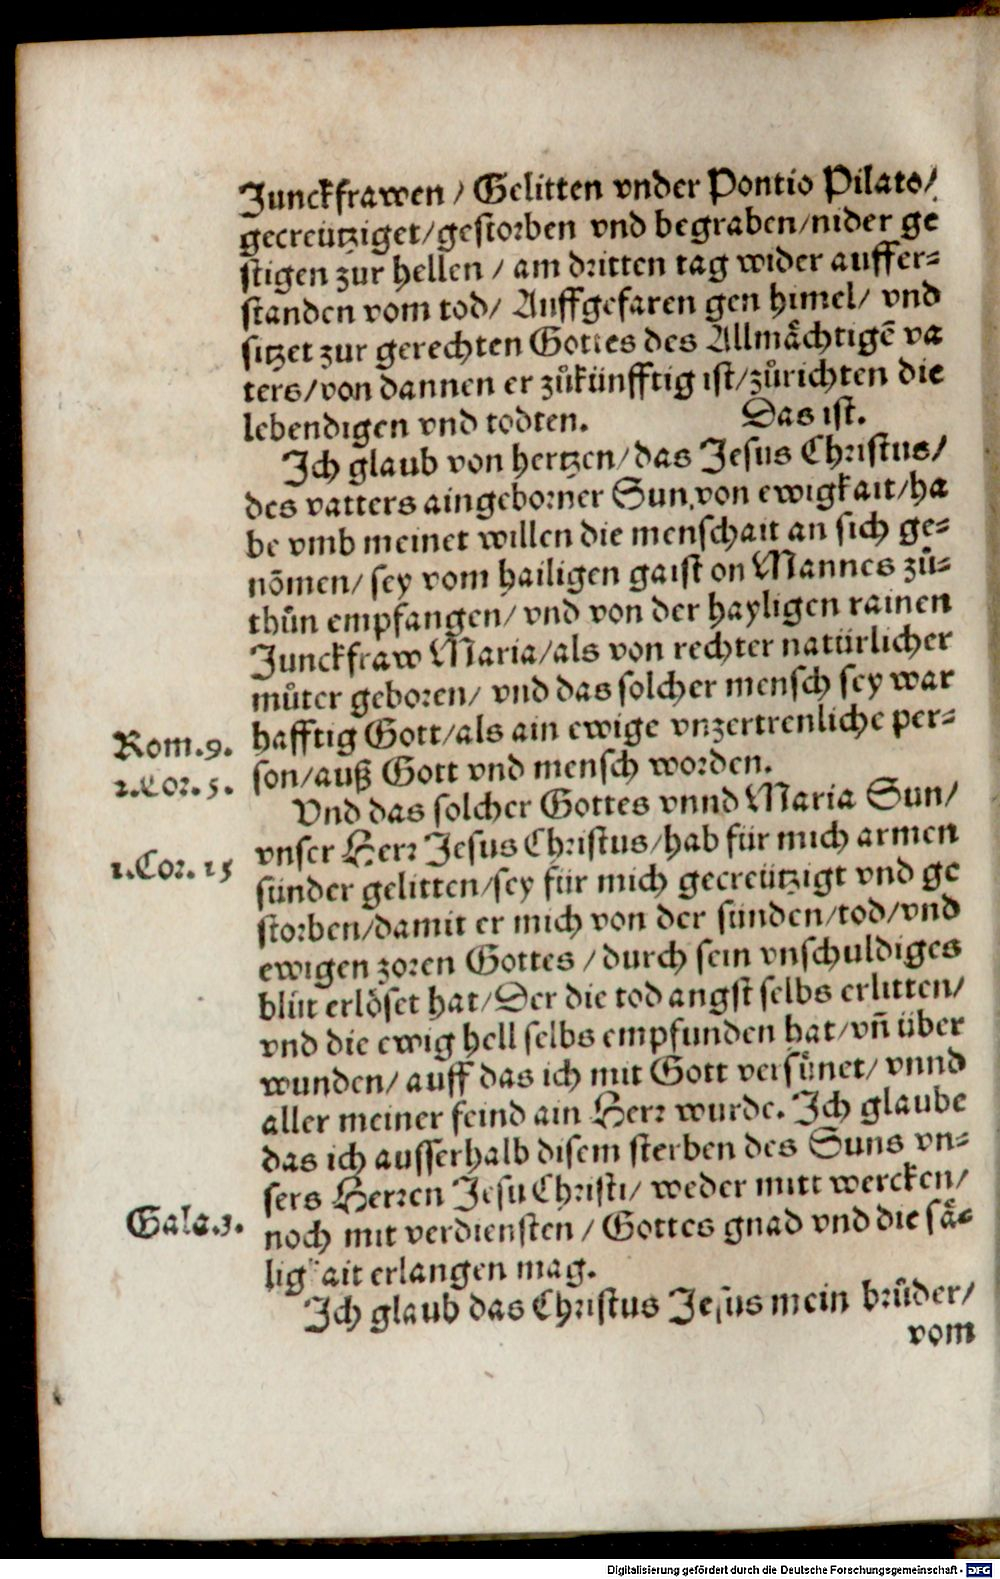 Junckfrawen / Gelitten vnder Pontio Pilato /
gecreütziget / gestorben vnd begraben / nider ge
stigen zur hellen / am dritten tag wider auffer⸗
standen vom tod / Auffgefaren gen himel / vnd
sitzet zur gerechten Gottes des Allmaͤchtigẽ va
ters / von dannen er zuͦkünfftig ist / zuͦrichten die
lebendigen vnd todten. Das ist.
Ich glaub von hertzen / das Jesus Christus /
des vatters aingeborner Sun, von ewigkait / ha
be vmb meinet willen die menschait an sich ge⸗
nõmen / sey vom hailigen gaist on Mannes zuͦ⸗
thuͦn empfangen / vnd von der hayligen rainen
Junckfraw Maria / als von rechter natürlicher
muͦter geboren / vnd das solcher mensch sey war
hafftig Gott / als ain ewige vnzertrenliche per⸗
Rom. 9.
son / auß Gott vnd mensch worden.
2. Cor. 5.
Vnd das solcher Gottes vnnd Maria Sun /
vnser Herr Jesus Christus / hab für mich armen
1. Cor. 15
sünder gelitten / sey für mich gecreützigt vnd ge
storben / damit er mich von der sünden / tod / vnd
ewigen zoren Gottes / durch sein vnschuldiges
bluͦt erloͤset hat / Der die tod angst selbs erlitten /
vnd die ewig hell selbs empfunden hat / vñ über
wunden / auff das ich mit Gott versuͤnet / vnnd
aller meiner feind ain Herr wurde. Ich glaube
das ich ausserhalb disem sterben des Suns vn⸗
sers Herren Jesu Christi / weder mitt wercken /
Gala. 3.
noch mit verdiensten / Gottes gnad vnd die saͤ⸗
ligkait erlangen mag.
Ich glaub das Christus Jesus mein bruͦder /
vom
Digitalisierung gefördert durch die Deutsche Forschungsgemeinschaft - DFG